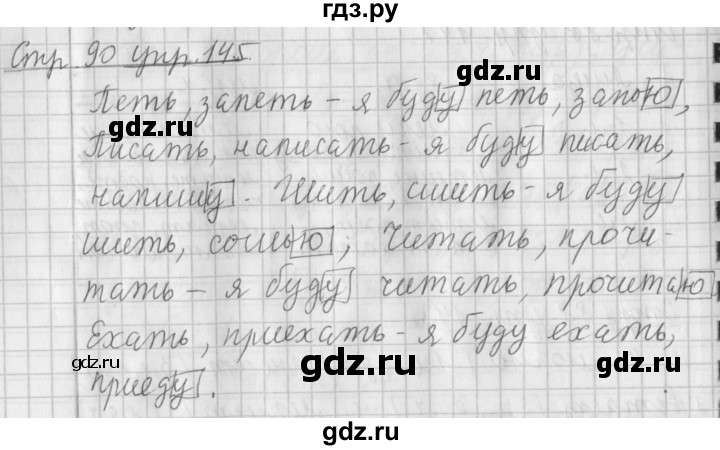 гдз.ру
Стр. 90 упр. 145
Петь, запеть - я буду петь, запою,
gdz.ru gdz.ru
Писать, написать - я буду писать,
напишу. Шить, сшить - я буду
шить, сошью; Читать, прочи-
gdz.ru gdz.ru
тать - я буду читать, прочитаю
Ехать, приехать - я буду ехать,
gdz.ru gdz.ru gdz.ru
приеду.
gdz.ru